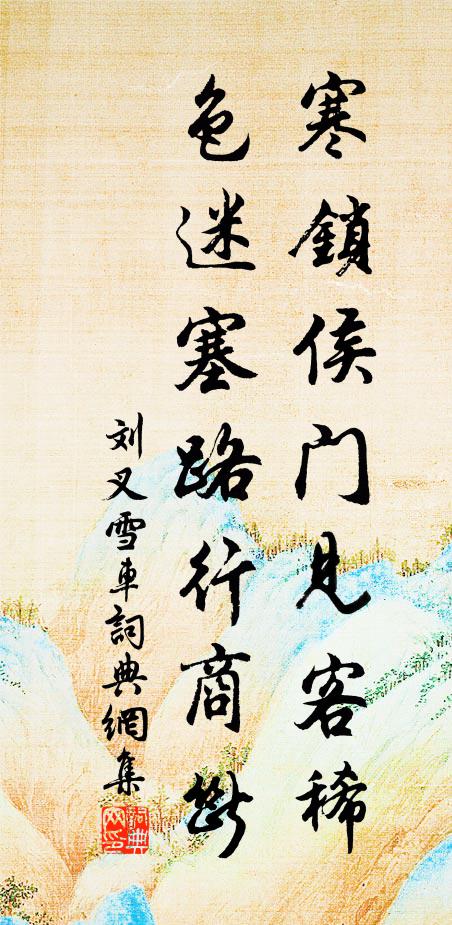 寒鎖侯门見客稀
色迷塞路行商斷
刘叉雪車詞典網集
詞典网印